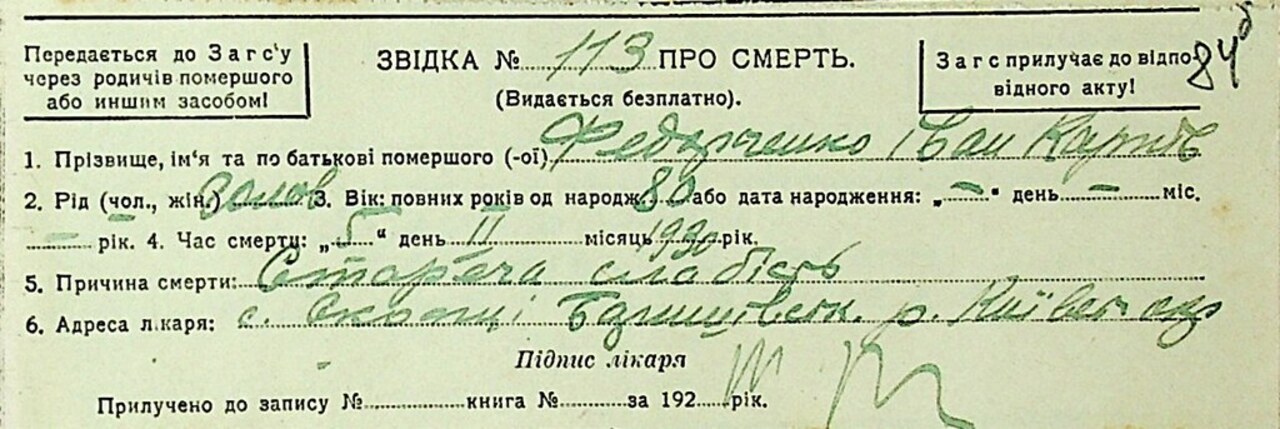 Передається до Загс'у
через родичів помершого
або иншим засобом!
ЗВІДКА № 113 ПРО СМЕРТЬ.
(Видається безплатно).
Загс прилучає до відпо-
відного акту!
84
1. Прізвище, ім'я та по батькові помершого (-ої) Федорченко Іван
2. Рід (чол., жін.) 3. Вік: повних років од народж. 80 або дата народження: „ – “ день – міс.
– рік. 4. Час смерти: „5“ день II місяць 1930 рік.
5. Причина смерти: Стареча слабість
6. Адреса лікаря: с. Скопці р. Київськ
Підпис лікаря
Прилучено до запису № книга № за 192 рік.